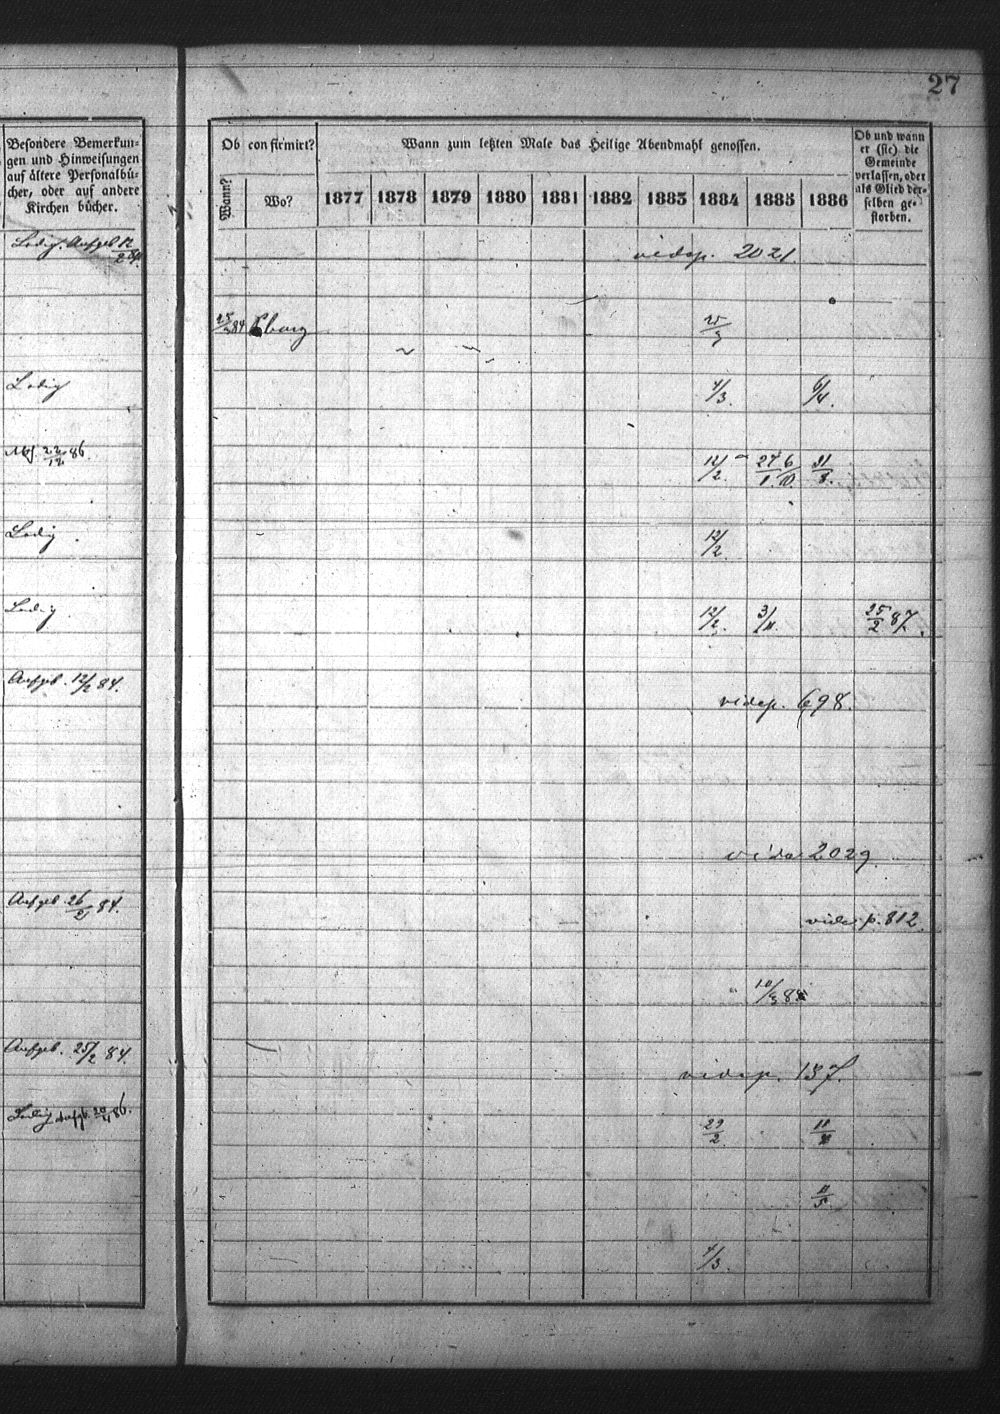 27
Besondere Bemerkun-
gen und Hinweisungen
auf ältere Personalbü-
cher, oder auf andere
Kirchen bücher.
Ob confirmirt?
Wann?
Wo?
Wann zum letzten Male das Heilige Abendmahl genossen.
1877 1878 1879 1880 1881 1882 1883 1884 1885 1886
Ob und wann
er (sie) die
Gemeinde
verlassen, oder
als Glied der-
selben ge-
storben.
Ledig. Aufgeb 12/2 84. vide p. 2021.
25/3 84 25/3
Ledig 4/3. 6/4.
22/12 86. 12/2. 27/1. 6/10. 31/8.
Ledig. 12/2.
Ledig 12/2. 3/11. 25/2 87.
Aufgeb. 12/2 84. vide p. 698.
vide 2029.
Aufgeb 26/2 84. vide p. 812.
10/3 85
Aufgeb. 25/2 84. vide p. 137.
Ledig aufgb. 20/4 86. 29/2. 11/
11/5.
4/3.